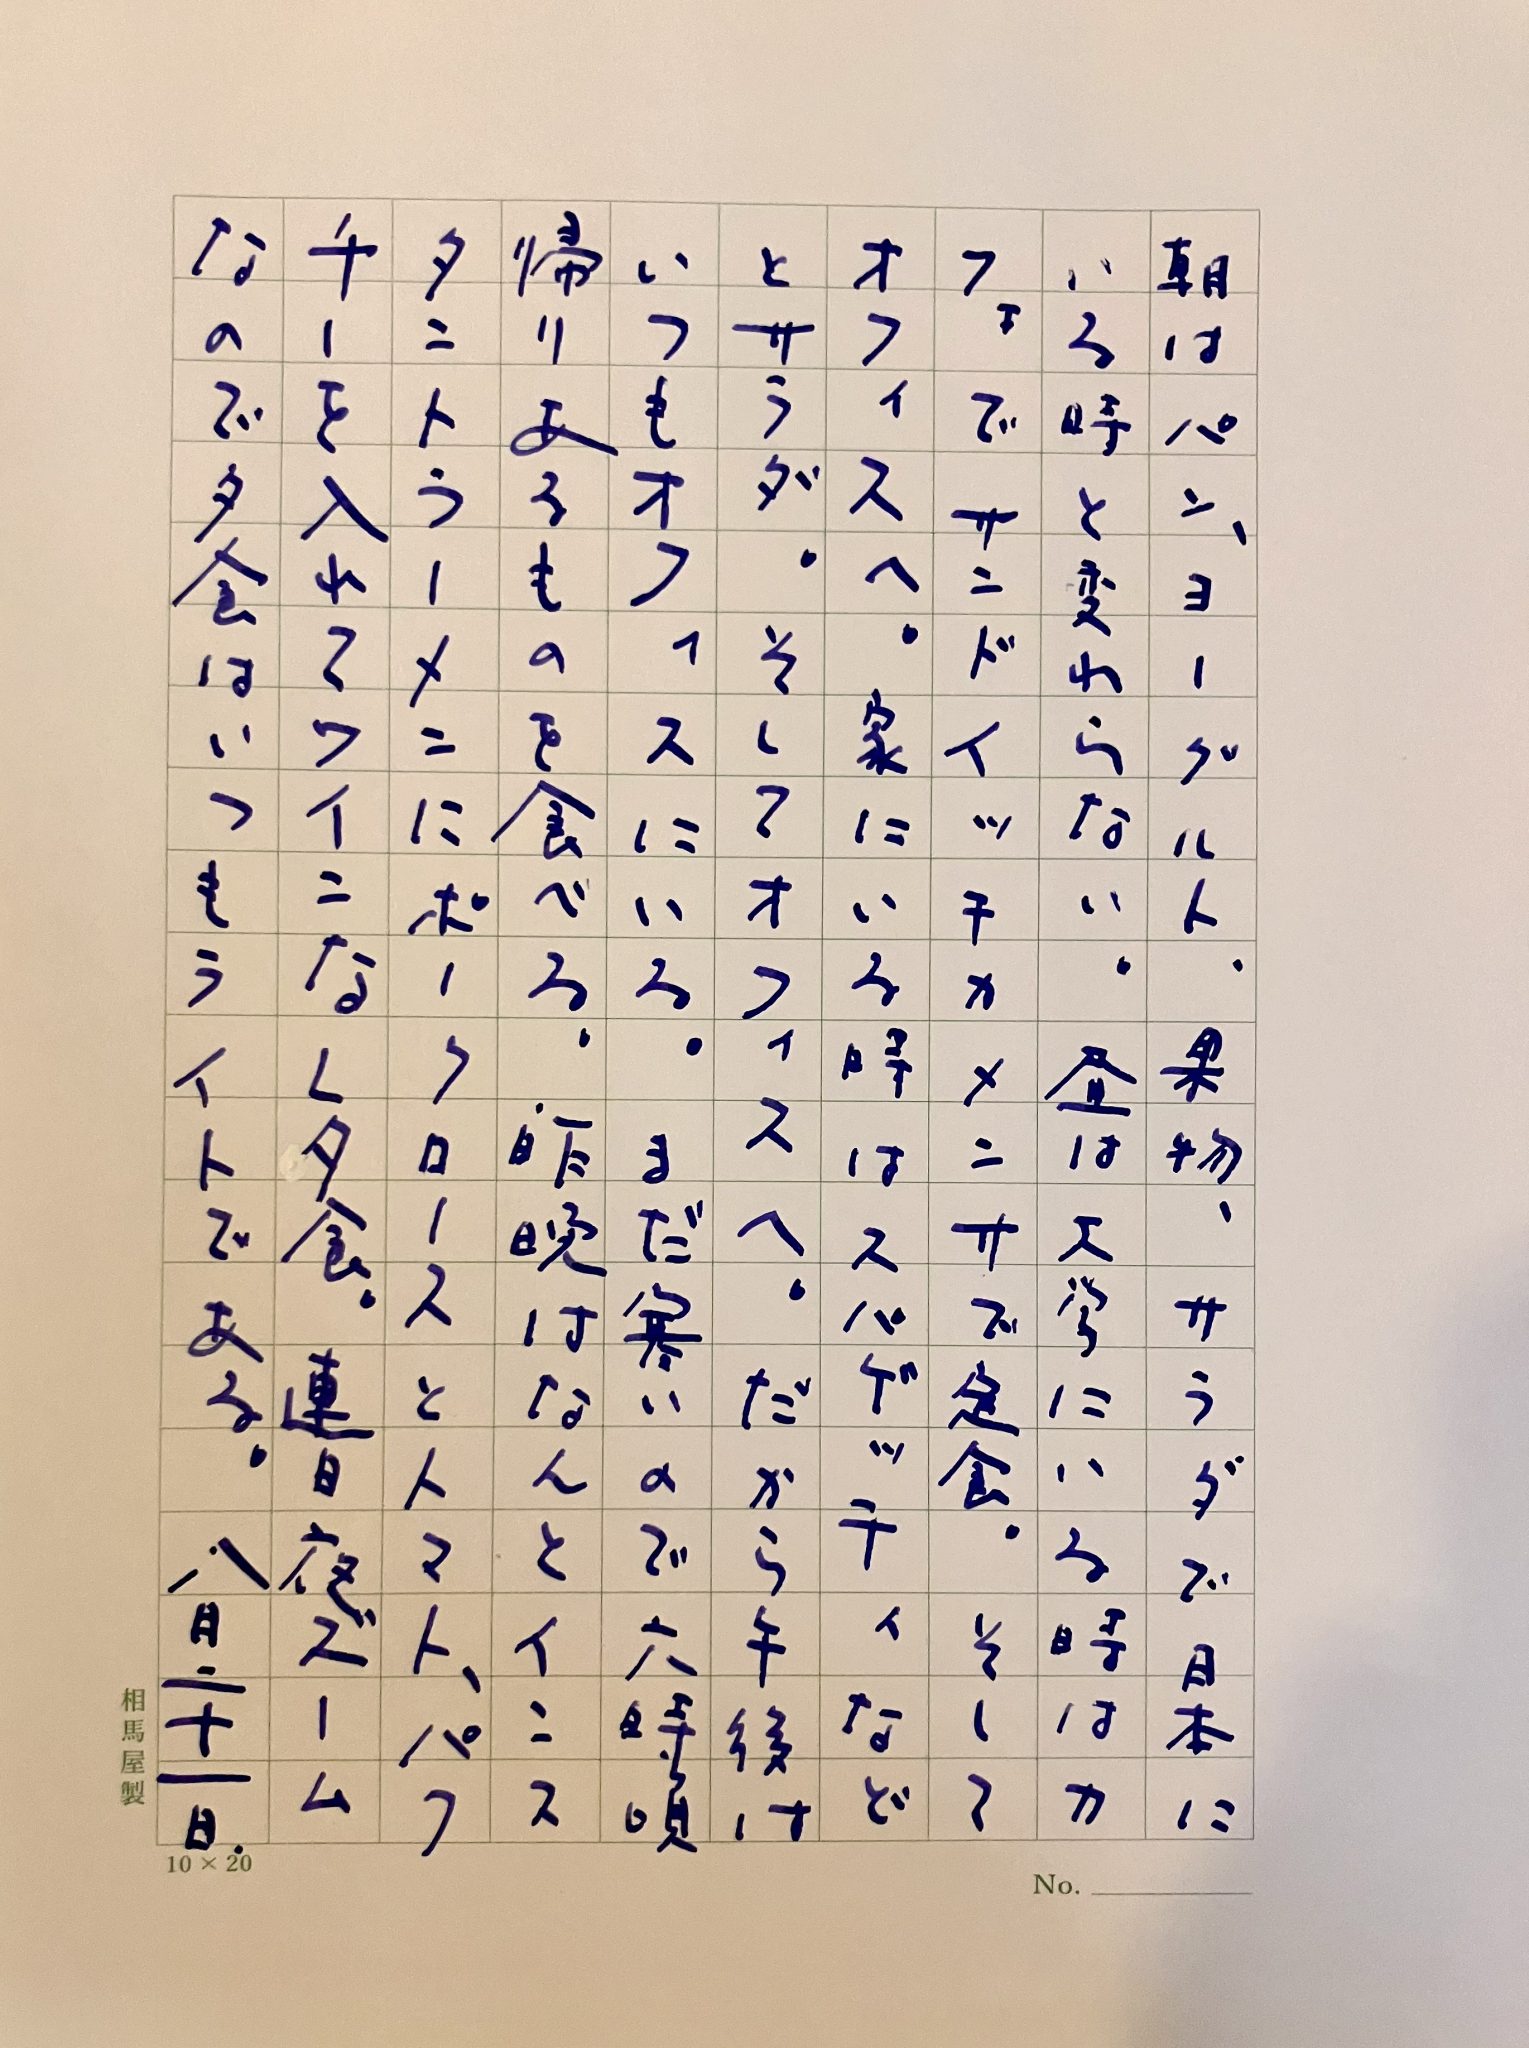 朝はパン、ヨーグルト。果物、サラダで日本に
いる時と変わらない。昼は大学にいる時はカ
フェでサンドイッチかメンサで定食。そして
オフィスへ。家にいる時はスパゲッティなど
とサラダ。そしてオフィスへ。だから午後は
いつもオフィスにいる。まだ寒いので六時頃
帰りあるものを食べる。昨晩はなんとインス
タントラーメンにポークロースとトマト、パプ
チーを入れてワインなし夕食。連日夜ズーム
なので夕食はいつもライトである。八月二十一日.
相馬屋製
10×20
No.